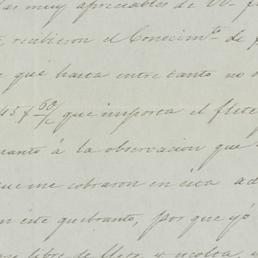 las muy apreciables de Vs. f
recibieron el Conocimto. de f
que hasta entre tanto no
45 f 60/c que importa el flete
cuanto á la observacion que
que me cobraron en esa ad
en este quebranto, por que yo
libre de flete y